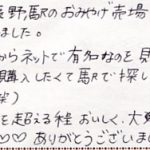 長野駅のおみやげ売場
ました。
からネットで有名なのを見
購入したくて駅で探し
笑)
を超える程おいしく、大
♡♡ ありがとうございま